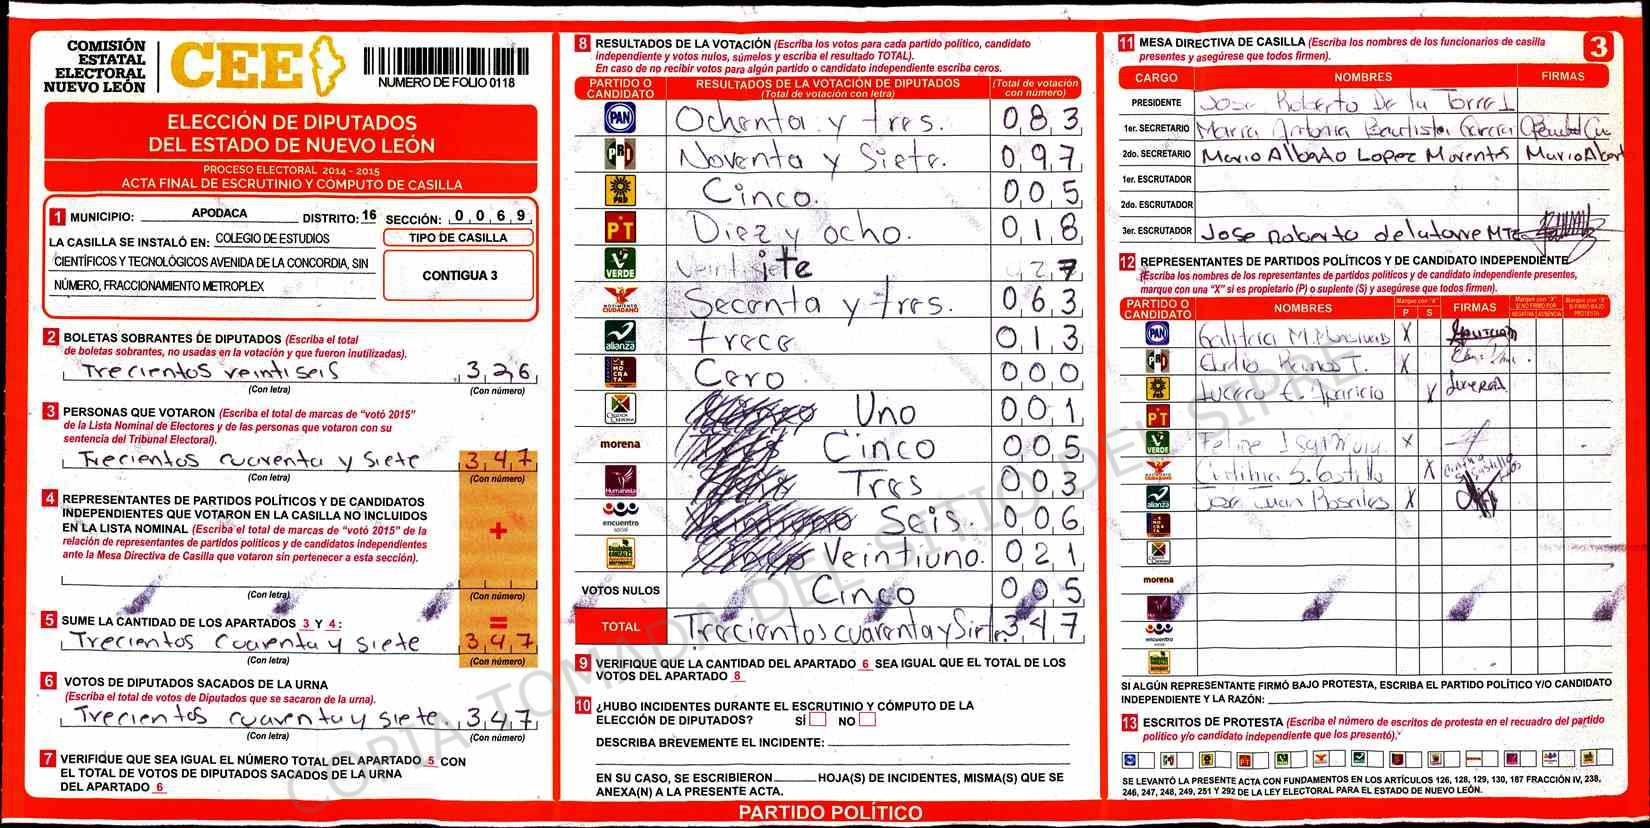 COMISIÓN
ESTATAL
ELECTORAL
NUEVO LEÓN
CEE
NUMERO DE FOLIO 0118
ELECCIÓN DE DIPUTADOS
DEL ESTADO DE NUEVO LEÓN
PROCESO ELECTORAL 2014 - 2015
ACTA FINAL DE ESCRUTINIO Y CÓMPUTO DE CASILLA
1 MUNICIPIO: APODACA DISTRITO: 16 SECCIÓN: 0 0 6 9
LA CASILLA SE INSTALÓ EN: COLEGIO DE ESTUDIOS
CIENTÍFICOS Y TECNOLÓGICOS AVENIDA DE LA CONCORDIA, SIN
NÚMERO, FRACCIONAMIENTO METROPLEX
TIPO DE CASILLA
CONTIGUA 3
2 BOLETAS SOBRANTES DE DIPUTADOS (Escriba el total
de boletas sobrantes, no usadas en la votación y que fueron inutilizadas).
Trecientos veintiseis 3 2 6
(Con letra) (Con número)
3 PERSONAS QUE VOTARON (Escriba el total de marcas de "votó 2015"
de la Lista Nominal de Electores y de las personas que votaron con su
sentencia del Tribunal Electoral).
Trecientos cuarenta y siete 3 4 7
(Con letra) (Con número)
4 REPRESENTANTES DE PARTIDOS POLÍTICOS Y DE CANDIDATOS
INDEPENDIENTES QUE VOTARON EN LA CASILLA NO INCLUIDOS
EN LA LISTA NOMINAL (Escriba el total de marcas de "votó 2015" de la
relación de representantes de partidos políticos y de candidatos independientes
ante la Mesa Directiva de Casilla que votaron sin pertenecer a esta sección).
+
(Con letra) (Con número)
5 SUME LA CANTIDAD DE LOS APARTADOS 3 Y 4: =
Trecientos Cuarenta y siete 3 4 7
(Con letra) (Con número)
6 VOTOS DE DIPUTADOS SACADOS DE LA URNA
(Escriba el total de votos de Diputados que se sacaron de la urna).
Trecientos cuarenta y siete. 3 4 7
(Con letra) (Con número)
7 VERIFIQUE QUE SEA IGUAL EL NÚMERO TOTAL DEL APARTADO 5 CON
EL TOTAL DE VOTOS DE DIPUTADOS SACADOS DE LA URNA
DEL APARTADO 6
8 RESULTADOS DE LA VOTACIÓN (Escriba los votos para cada partido político, candidato
independiente y votos nulos, súmelos y escriba el resultado TOTAL).
En caso de no recibir votos para algún partido o candidato independiente escriba ceros.
PARTIDO O CANDIDATO RESULTADOS DE LA VOTACIÓN DE DIPUTADOS (Total de votación con letra) (Total de votación con número)
PAN Ochenta y tres. 0 8 3
PRI Noventa y Siete. 0 9 7
PRD Cinco. 0 0 5
PT Diez y ocho. 0 1 8
VERDE veintisiete 2 7
MOVIMIENTO CIUDADANO Secenta y tres. 0 6 3
alianza trece 0 1 3
DEMOCRATA Cero 0 0 0
CRUZADA CIUDADANA Uno 0 0 1
morena Cinco 0 0 5
Humanista Tres 0 0 3
encuentro social Seis. 0 0 6
Veintiuno. 0 2 1
VOTOS NULOS Cinco 0 0 5
TOTAL Trecientos cuarenta y Siete 3 4 7
9 VERIFIQUE QUE LA CANTIDAD DEL APARTADO 6 SEA IGUAL QUE EL TOTAL DE LOS
VOTOS DEL APARTADO 8
10 ¿HUBO INCIDENTES DURANTE EL ESCRUTINIO Y CÓMPUTO DE LA
ELECCIÓN DE DIPUTADOS? SÍ NO
DESCRIBA BREVEMENTE EL INCIDENTE:
EN SU CASO, SE ESCRIBIERON HOJA(S) DE INCIDENTES, MISMA(S) QUE SE
ANEXA(N) A LA PRESENTE ACTA.
PARTIDO POLÍTICO
11 MESA DIRECTIVA DE CASILLA (Escriba los nombres de los funcionarios de casilla
presentes y asegúrese que todos firmen).
3
CARGO NOMBRES FIRMAS
PRESIDENTE Jose Roberto De la Torre
1er. SECRETARIO Maria Antonia Bautista Garcia
2do. SECRETARIO Mario Alberto Lopez Morentos Mario Albert
1er. ESCRUTADOR
2do. ESCRUTADOR
3er. ESCRUTADOR Jose Roberto delatorre
12 REPRESENTANTES DE PARTIDOS POLÍTICOS Y DE CANDIDATO INDEPENDIENTE
(Escriba los nombres de los representantes de partidos políticos y de candidato independiente presentes,
marque con una "X" si es propietario (P) o suplente (S) y asegúrese que todos firmen).
PARTIDO O CANDIDATO NOMBRES Marque con "X" P S FIRMAS Marque con "X" SI NO FIRMÓ POR NEGATIVA AUSENCIA Marque con "X" SI FIRMÓ BAJO PROTESTA
PAN X
PRI X
PRD Lucero X
PT
VERDE Felipe X
MOVIMIENTO CIUDADANO S. Castillo X
alianza Jose Juan Rosales X
morena
encuentro social
SI ALGÚN REPRESENTANTE FIRMÓ BAJO PROTESTA, ESCRIBA EL PARTIDO POLÍTICO Y/O CANDIDATO
INDEPENDIENTE Y LA RAZÓN:
13 ESCRITOS DE PROTESTA (Escriba el número de escritos de protesta en el recuadro del partido
político y/o candidato independiente que los presentó).
SE LEVANTÓ LA PRESENTE ACTA CON FUNDAMENTOS EN LOS ARTÍCULOS 126, 128, 129, 130, 187 FRACCIÓN IV, 238,
246, 247, 248, 249, 251 Y 292 DE LA LEY ELECTORAL PARA EL ESTADO DE NUEVO LEÓN.
COPIA TOMADA DEL SITIO DEL SIPRE